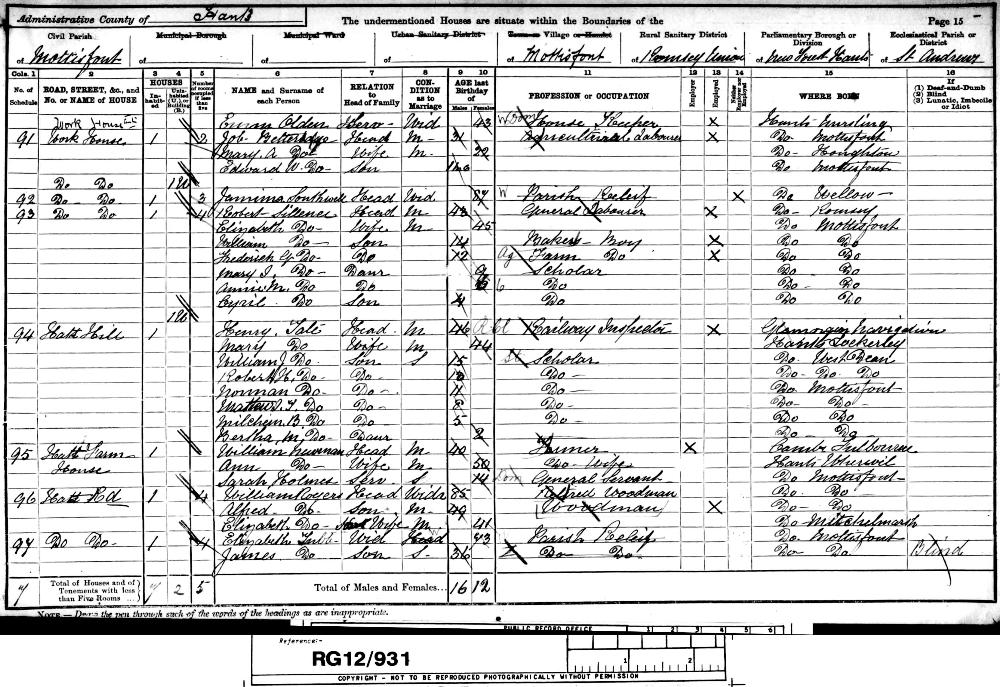 Administrative County of Hants The undermentioned Houses are situate within the Boundaries of the Page 15
Civil Parish Municipal Borough Municipal Ward Urban Sanitary District Town or Village or Hamlet Rural Sanitary District Parliamentary Borough or Division Ecclesiastical Parish or District
of Mottisfont of of of of Mottisfont of Romsey Union of of St Andrews
Cols. 1 2 3 4 5 6 7 8 9 10 11 12 13 14 15 16
No. of Schedule ROAD, STREET, &c., and No. or NAME of HOUSE HOUSES Inhabited Uninhabited (U.) or Building (B.) Number of rooms occupied if less than five NAME and Surname of each Person RELATION to Head of Family CONDITION as to Marriage AGE last Birthday of Males Females PROFESSION or OCCUPATION Employer Employed Neither Employer nor Employed WHERE BORN (1) Deaf-and-Dumb (2) Blind (3) Lunatic, Imbecile or Idiot
Work House Emma Olden Serv Wid 43 W Dom House Keeper X Hants Nursling
91 Work House 1 2 Job Head M 31 Agricultural Labourer X Do Mottisfont
Mary A Do Wife M 22 Do Houghton
Edward W. Do Son Do Mottisfont
Do Do 1 U
92 Do Do 1 3 Jamima Southwell Head Wid 87 W Parish Releif X Do Wellow
93 Do Do 1 4 Robert Sillence Head M 43 General Labourer X Do Romsey
Elizabeth Do Wife M 45 Do Mottisfont
William Do Son 14 Bakers Boy X Do Do
Frederick G Do Do 12 Ag Farm Do X Do Do
Mary J. Do Daur 9 Scholar Do Do
Annie M. Do Do 6 Do Do Do
Cyril Do Son 4 Do Do Do
1 U
94 Hatt Hill 1 Henry Tate Head M 46 Railway Inspector X
Mary Do Wife M 44 Hants Lockerley
William J. Do Son S 15 Scholar Do West Dean
Robert H. Do Do Do Do Do
Norman Do Do 11 Do Do Mottisfont
Do Do 8 Do Do Do
B. Do Do 5 Do Do Do
Bertha M. Do Daur 2 Do Do
95 Hatt Farm House 1 William Newman Head M 40 Farmer X Cambs Fulbourne
Ann Do Wife M 50 Do Wife Hants
Sarah Holmes Serv S 14 Dom General Servant Do Mottisfont
96 Hatt 1 4 William Rogers Head Widr 85 Retired Woodman Do Do
Alfred Do Son M 49 Woodman X Do Do
Elizabeth Do Wife M 41 Do Mitchelmarsh
97 Do Do 1 4 Elizabeth Wid Head 73 Parish Releif Do Mottisfont
James Do Son S 36 X Do Do Do Do Blind
7 Total of Houses and of Tenements with less than Five Rooms 7 2 5 Total of Males and Females... 16 12
NOTE.—Draw the pen through such of the words of the headings as are inappropriate.
PUBLIC RECORD OFFICE 1 2 3 4 5 6
Reference:-
RG12/931 1 2
COPYRIGHT - NOT TO BE REPRODUCED PHOTOGRAPHICALLY WITHOUT PERMISSION